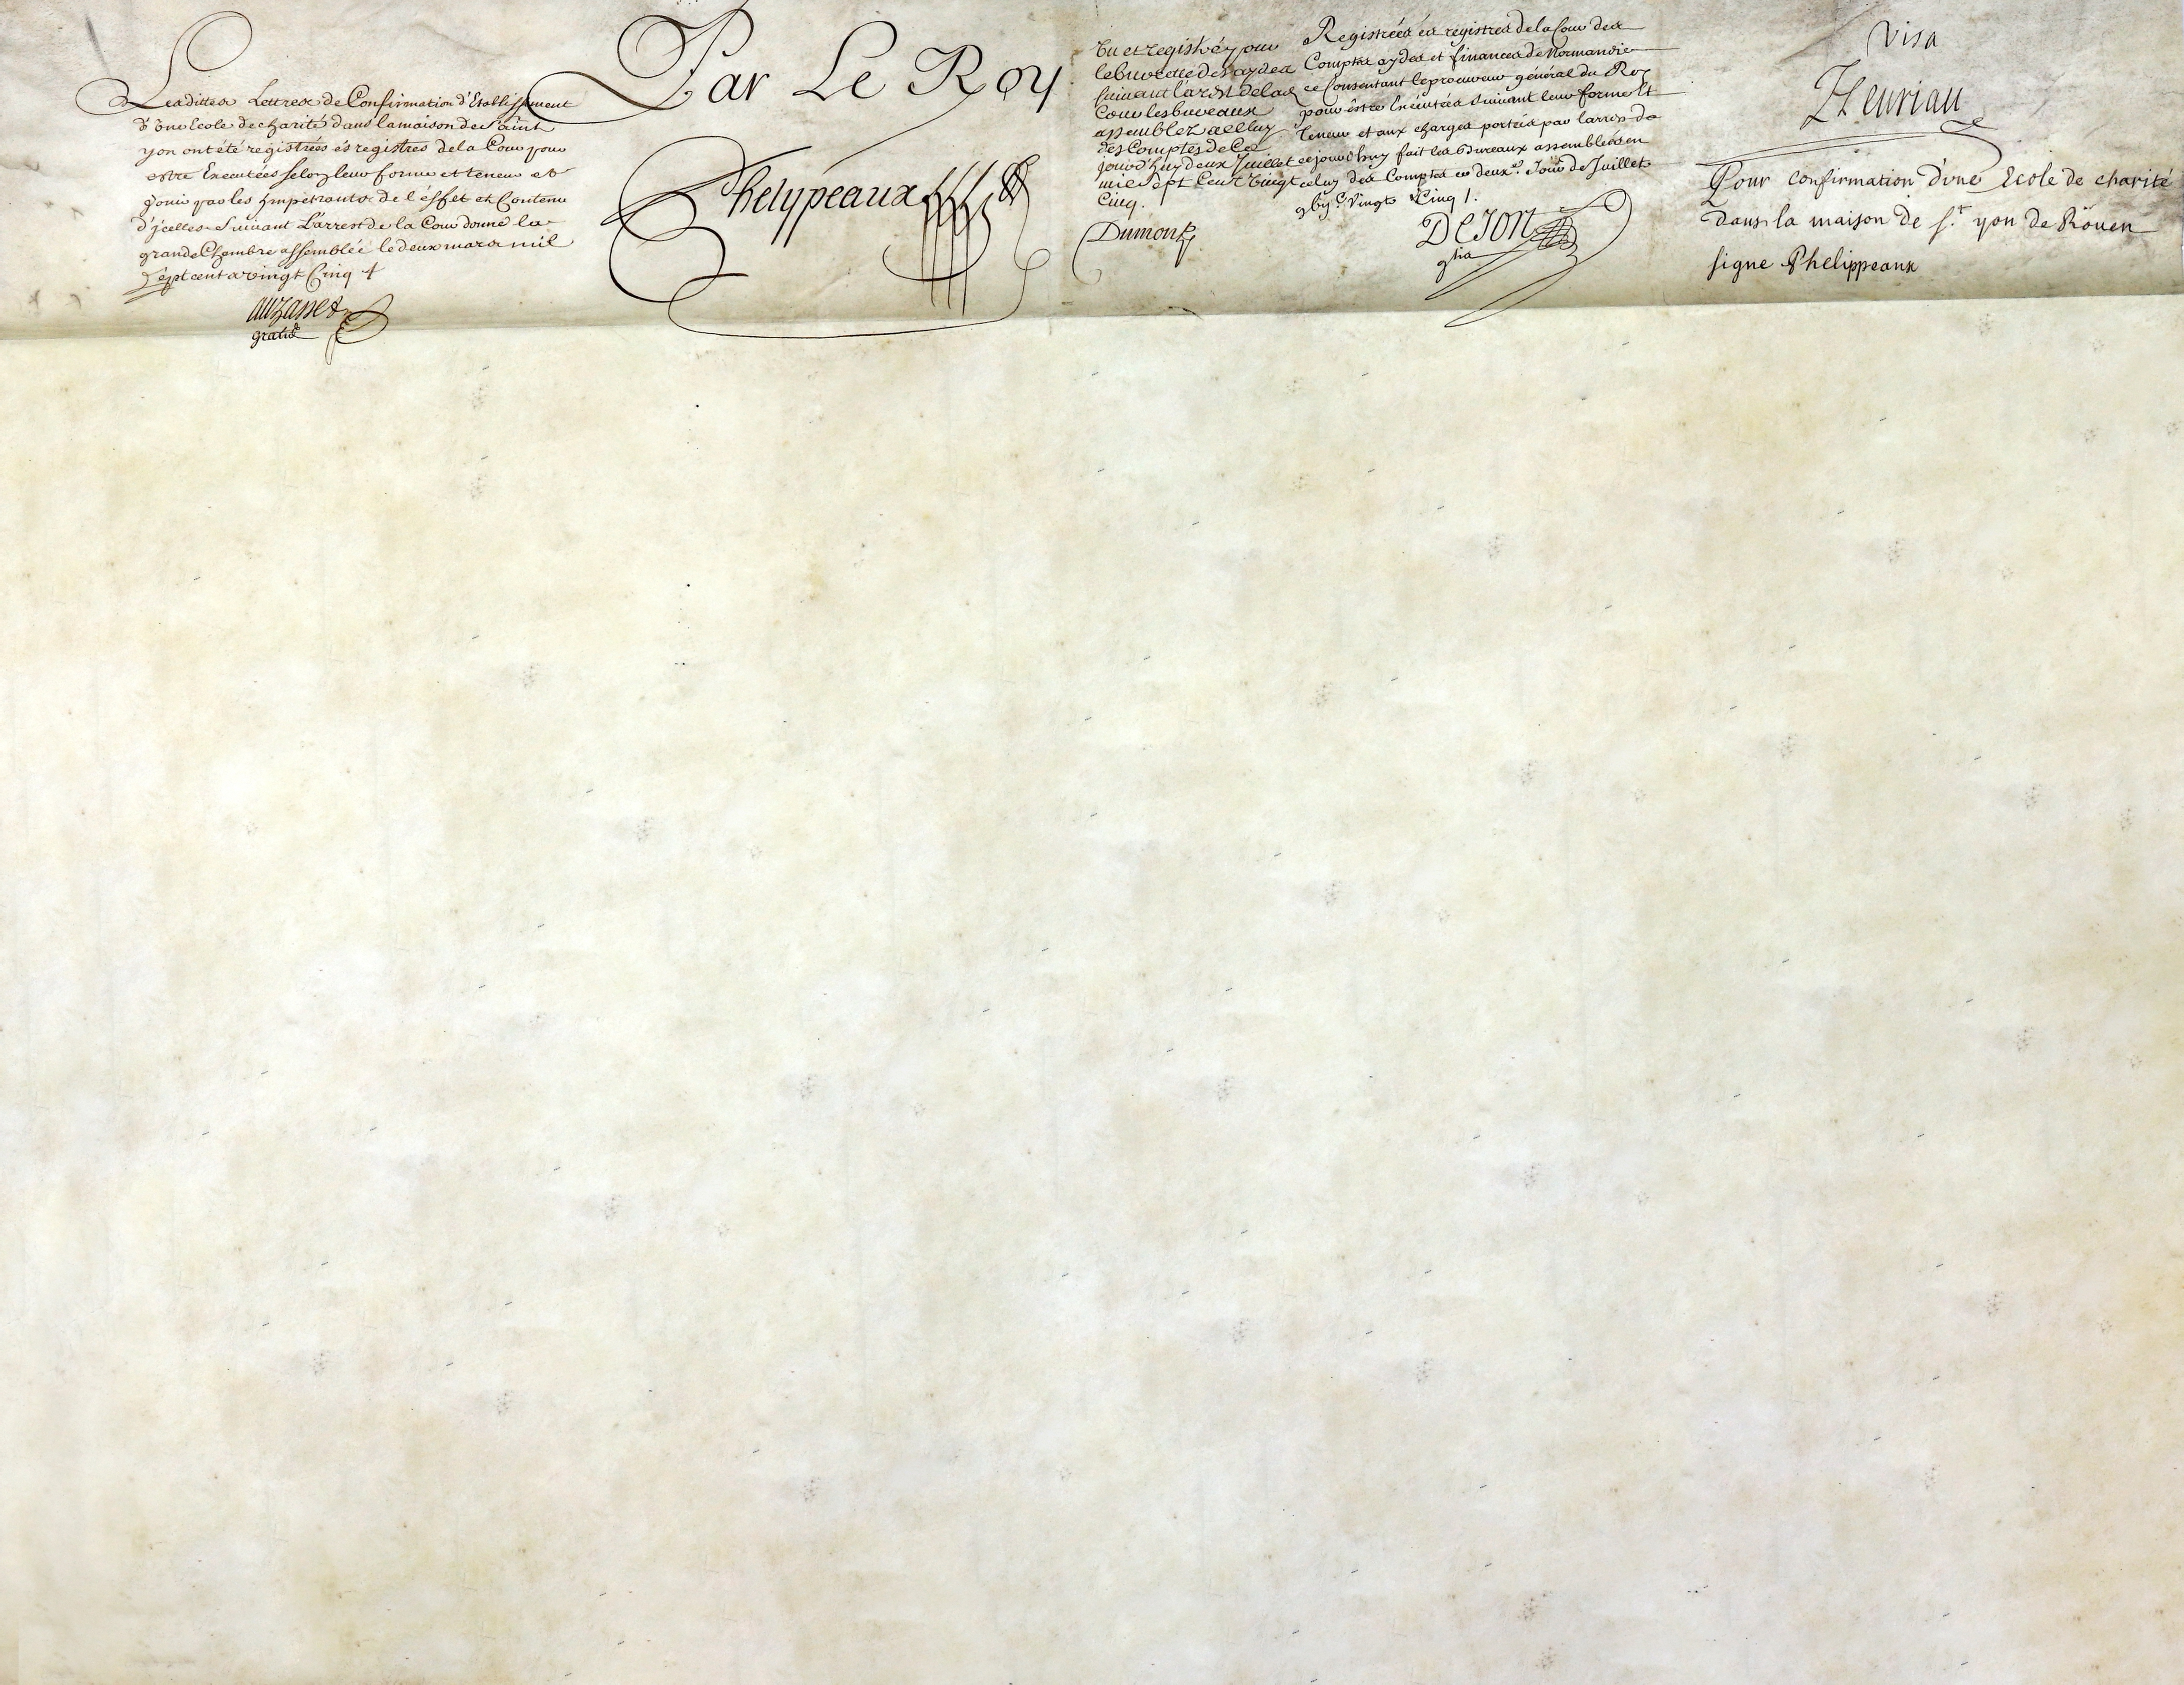 Lesdittes Lettres de Confirmation d'Etablissement
d'Une Ecole de charité dans la maison de Saint
yon ont été registrées és registres de la Cour pour
estre Executées selon leur forme et teneur et
Jouir par les Impetrants de l'effet et Contenu
d'jcelles Suivant L'arrest de la Cour donné la
grande Chambre assemblée le deux mars mil
Sept cents vingt Cinq
Auzanet
gratis
Par Le Roy
Phelypeaux
Vu et registré pour
le buvette des aydes
suivant l'arest de lad.
Cour les bureaux
assemblez a celluy
des Comptes de Ce
jourd'huy deux Juillet
mil Sept Cent Vingt
Cinq.
Dumont
Registrées és registres de la Cour des
Comptes aydes et finances de Normandie
ce Consentant le procureur général du Roy
pour être Executées Suivant leur forme Et
teneur et aux charges portées par l'arrest de
cejourd'huy fait les Bureaux assemblés en
celuy des Comptes ce deux.e Jour de Juillet
gbij.c Vingt Cinq
DeJort
Visa
Fleuriau
Pour confirmation d'une Ecole de charité
dans la maison de S.t yon de Roüen
signé Phelippeaux